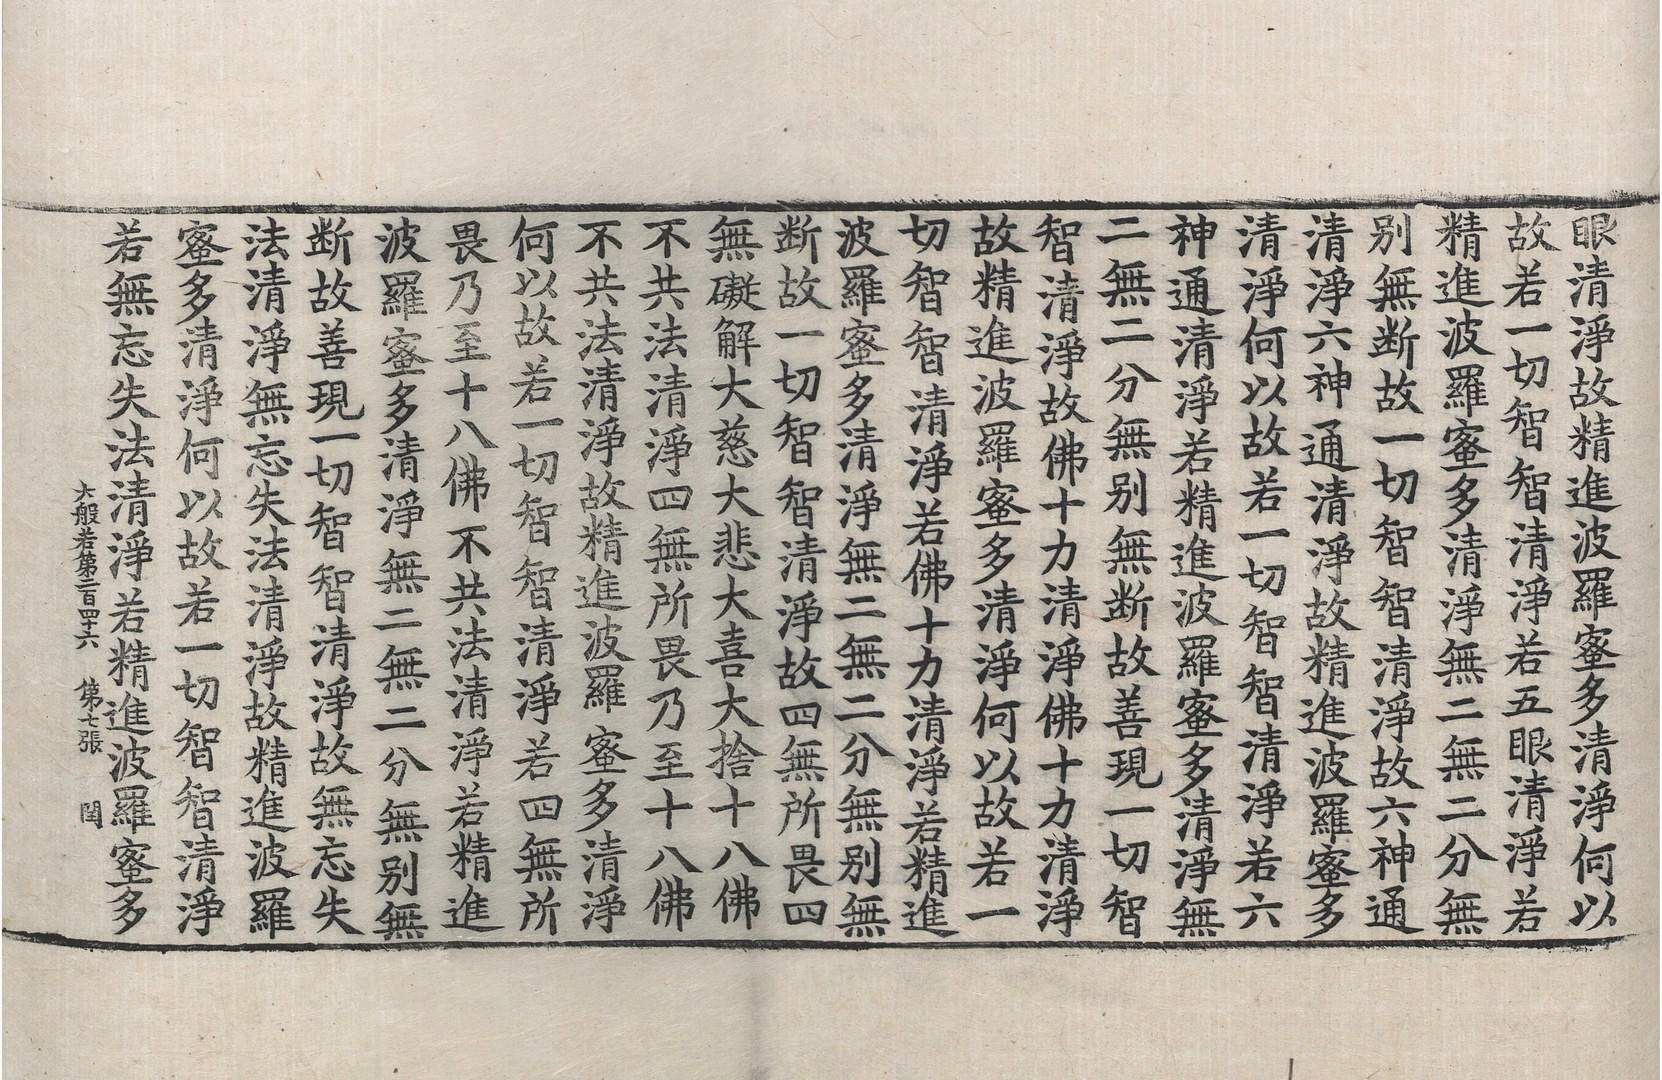 眼清淨故精進波羅蜜多清淨何以
故若一切智智清淨若五眼清淨若
精進波羅蜜多清淨無二無二分無
别無断故一切智智清淨故六神通
清淨六神通清淨故精進波羅蜜多
清淨何以故若一切智智清淨若六
神通清淨若精進波羅蜜多清淨無
二無二分無别無断故善現一切智
智清淨故佛十力清淨佛十力清淨
故精進波羅蜜多清淨何以故若一
切智智清淨若佛十力清淨若精進
波羅蜜多清淨無二無二分無别無
断故一切智智清淨故四無所畏四
無礙解大慈大悲大喜大捨十八佛
不共法清淨四無所畏乃至十八佛
不共法清淨故精進波羅蜜多清淨
何以故若一切智智清淨若四無所
畏乃至十八佛不共法清淨若精進
波羅蜜多清淨無二無二分無别無
断故善現一切智智清淨故無忘失
法清淨無忘失法清淨故精進波羅
蜜多清淨何以故若一切智智清淨
若無忘失法清淨若精進波羅蜜多
大般若第二百四十六 第七張 閏